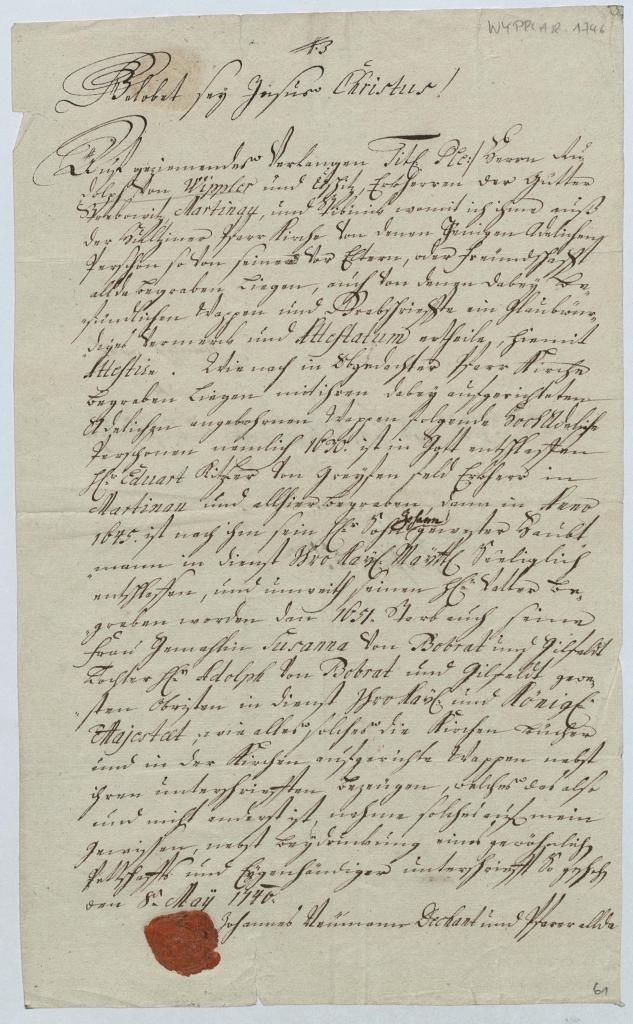 WYPPLAR 1746
43
Gelobet sey Jesus Christus!
Auf geziemendes Verlangen Titl. Ple: Herrn Ru
dolph von Wippler und Erbherren der Gütter
Martinau, und womit ich ihme auß
der Pfarr Kirche von denen Jenigen Adelichen
Persohn so von seinen Vor Eltern, oder Freundschafft
allda begraben Liegen, auch von denen dabey be-
findlichen Wappen und Grabschriffte ein Glaubwür-
diges Vermerck und Attestatum ertheile, hiemit
Attestire. Wie nach in Obgedachter Pfarr Kirche
begraben Liegen mit ihren dabey aufgerichteten
Adelichen angebohrnen Wappen folgende HochAdeliche
Persohnen nemlich 1630. ist in Gott entschlaffen
H: Eduart von Greyfen feld Erbherr in
Martinau und allhier begraben, dann in Anno
1645. ist nach ihm sein H: Sohn Johann gewester Haubt
mann in Dienst Ihro Kayl. Maytt. Seeliglich
entschlaffen, und unweith seinen H: Vatter be-
graben worden den 1651. Starb auch seine
Frau Gemahlin Susanna von Bobrat und Gilfeldt
Tochter H: Adolph von Bobrat und Gilfeldt gewe-
sten Obristen in Dienst Ihro Kayl: und Königl:
Majestæt, wie alles solches die Kirchen Bücher
und in der Kirchen aufgerichte Wappen nebst
ihren unterschrifften bezeugen, welches das also
und nicht anderst ist, nehme solches auf mein
Gewissen, nebst Beydruckung eines gewöhnlich
Pettschaffts und Eygenhändiger unterschrifft So gescheh
den 8t May 1746.
Johannes Neumann Dechant und Pfarrer allda
61